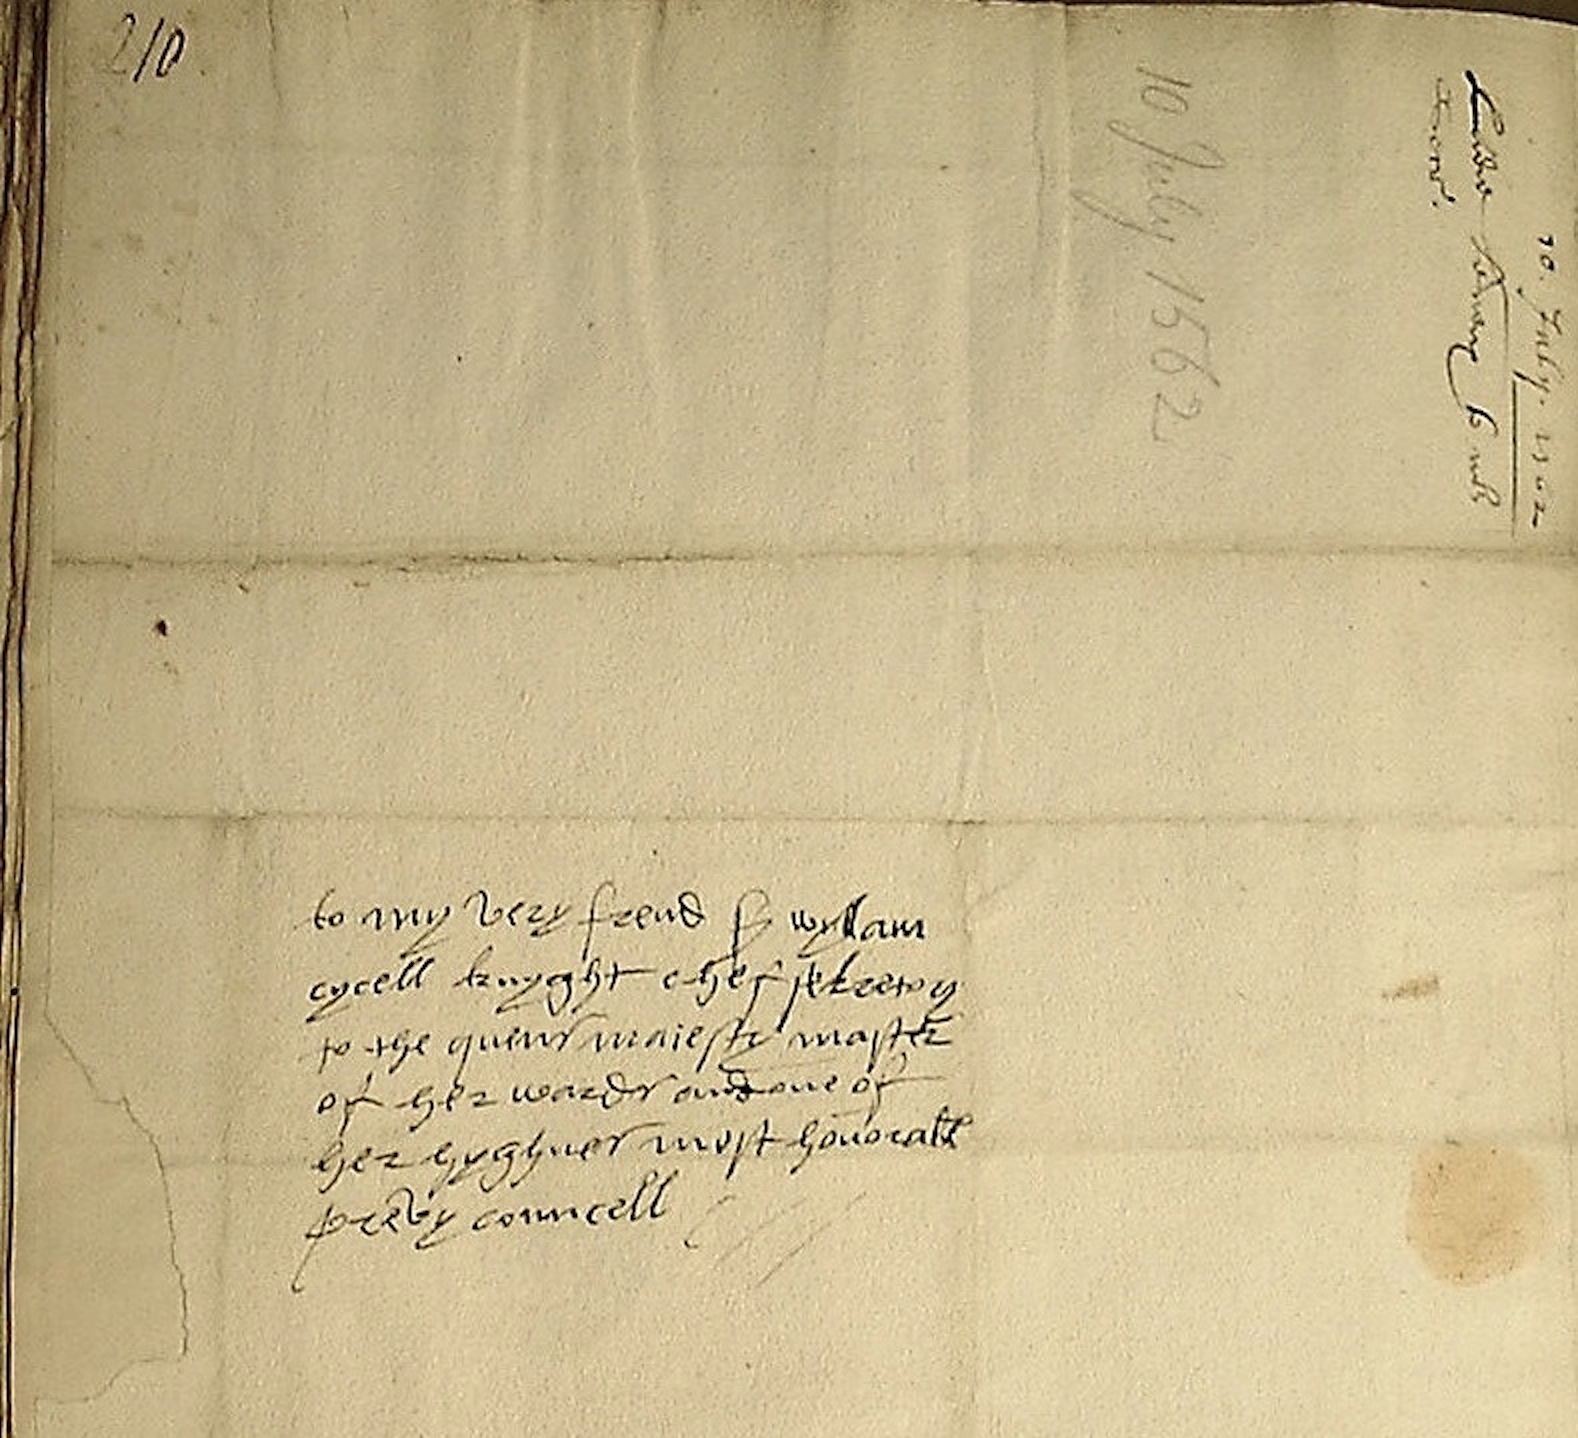 210
10 July 1562
10. July. 1562
to my very frend Sr wyllam
cycell knyght chef sekretory
to the quens maiesty master
of her wards and one of
her hyghnes most honorabll
prevy councell